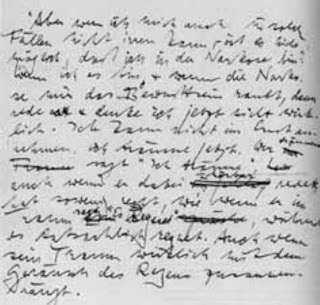 "Aber wenn ich mich auch in solchen
Fällen nicht irren kann, – ist es nicht
möglich, daß ich in der Narkose bin?"
Wenn ich es bin, & wenn die Narko-
se mir das Bewußtsein raubt, dann
rede & denke ich jetzt nicht wirk-
lich. Ich kann nicht im Ernst an-
nehmen, ich träume jetzt. Wer träumend
sagt "Ich träume",
auch wenn er dabei hörbar redete,
hat sowenig recht, wie wenn er im
Traum sagt "Es regnet", während
es tatsächlich regnet. Auch wenn
sein Traum wirklich mit dem
Geräusch des Regens zusammen-
hängt.